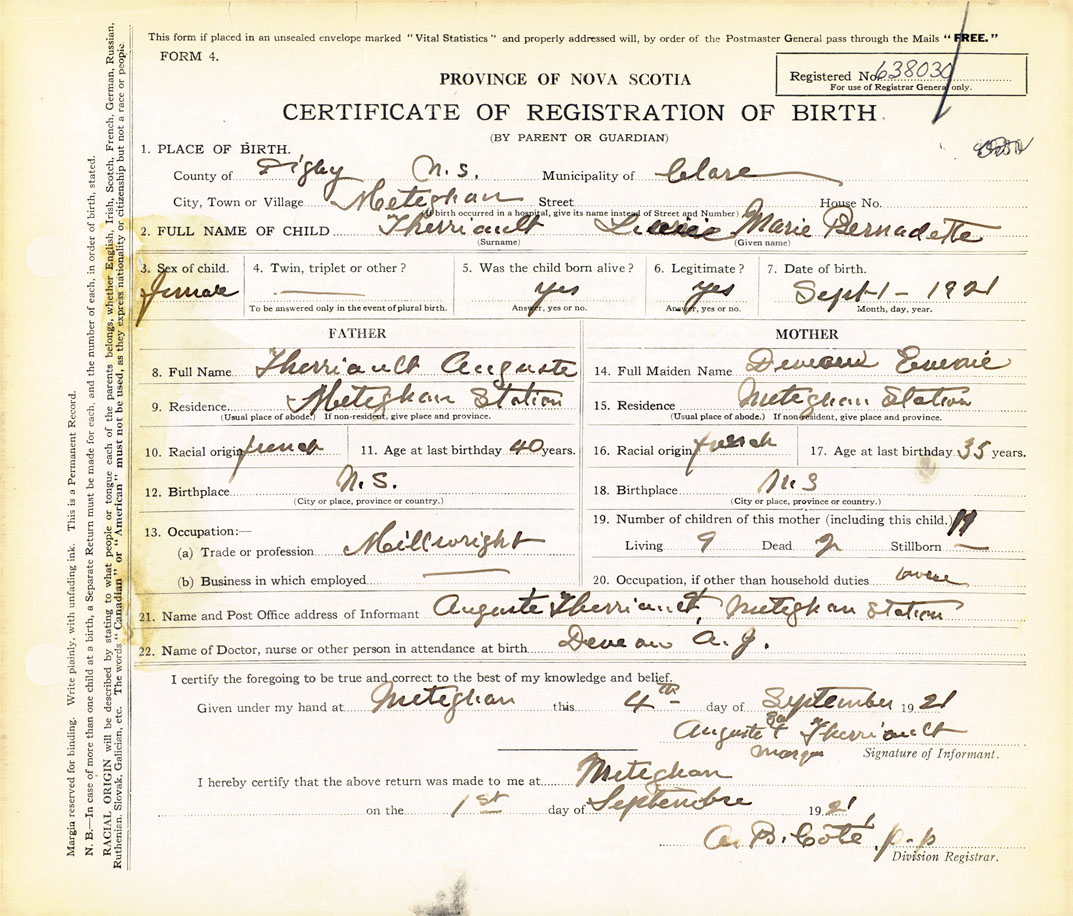 This form if placed in an unsealed envelope marked "Vital Statistics" and properly addressed will, by order of the Postmaster General pass through the Mails "FREE."
FORM 4.
Registered No. 638030
For use of Registrar General only.
PROVINCE OF NOVA SCOTIA
CERTIFICATE OF REGISTRATION OF BIRTH
(BY PARENT OR GUARDIAN)
1. PLACE OF BIRTH.
County of Digby N.S. Municipality of Clare
City, Town or Village Meteghan Street House No.
(If birth occurred in a hospital, give its name instead of Street and Number)
2. FULL NAME OF CHILD Therriault Marie Bernadette
(Surname) (Given name)
3. Sex of child. 4. Twin, triplet or other? 5. Was the child born alive? 6. Legitimate? 7. Date of birth.
female yes yes Sept 1 - 1921
To be answered only in the event of plural birth. Answer, yes or no. Answer, yes or no. Month, day, year.
FATHER MOTHER
8. Full Name Therriault Auguste
14. Full Maiden Name
9. Residence Meteghan Station
15. Residence Meteghan Station
(Usual place of abode.) If non-resident, give place and province.
(Usual place of abode.) If non-resident, give place and province.
10. Racial origin french 11. Age at last birthday 40 years.
16. Racial origin french 17. Age at last birthday 35 years.
12. Birthplace N.S.
18. Birthplace N S
(City or place, province or country.)
(City or place, province or country.)
13. Occupation:—
19. Number of children of this mother (including this child.) 11
(a) Trade or profession Millwright
Living 9 Dead 2 Stillborn —
(b) Business in which employed
20. Occupation, if other than household duties
21. Name and Post Office address of Informant Auguste Therriault, Meteghan Station
22. Name of Doctor, nurse or other person in attendance at birth Deveau A. J.
I certify the foregoing to be true and correct to the best of my knowledge and belief.
Given under my hand at Meteghan this 4th day of September 1921
Auguste Therriault
Signature of Informant.
I hereby certify that the above return was made to me at Meteghan
on the 1st day of Septembre 1921
A. B. Coté, p-p
Division Registrar.
Margin reserved for binding. Write plainly, with unfading ink. This is a Permanent Record.
N. B.—In case of more than one child at a birth, a Separate Return must be made for each, and the number of each, in order of birth, stated.
RACIAL ORIGIN will be described by stating to what people or tongue each of the parents belongs, whether English, Irish, Scotch, French, German, Russian,
Ruthenian, Slovak, Galician, etc. The words "Canadian" or "American" must not be used, as they express nationality or citizenship but not a race or people.